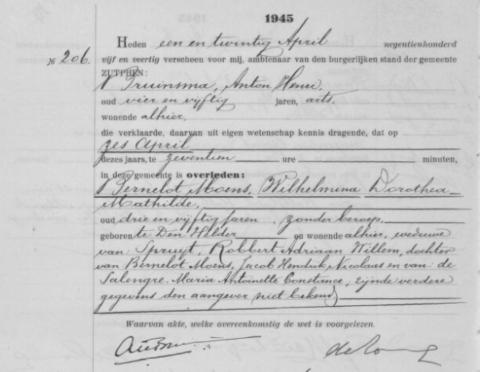 1945
№ 206.
Heden een en twintig April negentienhonderd
vijf en veertig verscheen voor mij, ambtenaar van den burgerlijken stand der gemeente
ZUTPHEN:
Bruinsma, Anton Henri,
oud vier en vijftig jaren, arts,
wonende alhier,
die verklaarde, daarvan uit eigen wetenschap kennis dragende, dat op
zes April
dezes jaars, te zeventien ure minuten,
in deze gemeente is overleden:
Bernelot Moens, Wilhelmina Dorothea
Mathilde,
oud drie en vijftig jaren, zonder beroep,
geboren te Den Helder en wonende alhier, weduwe
van Spruyt, Robbert Adriaan Willem, dochter
van Bernelot Moens, Jacob Hendrik Nicolaas en van de
Salengre, Maria Antoinette Constance, zijnde verdere
gegevens den aangever niet bekend
Waarvan akte, welke overeenkomstig de wet is voorgelezen.